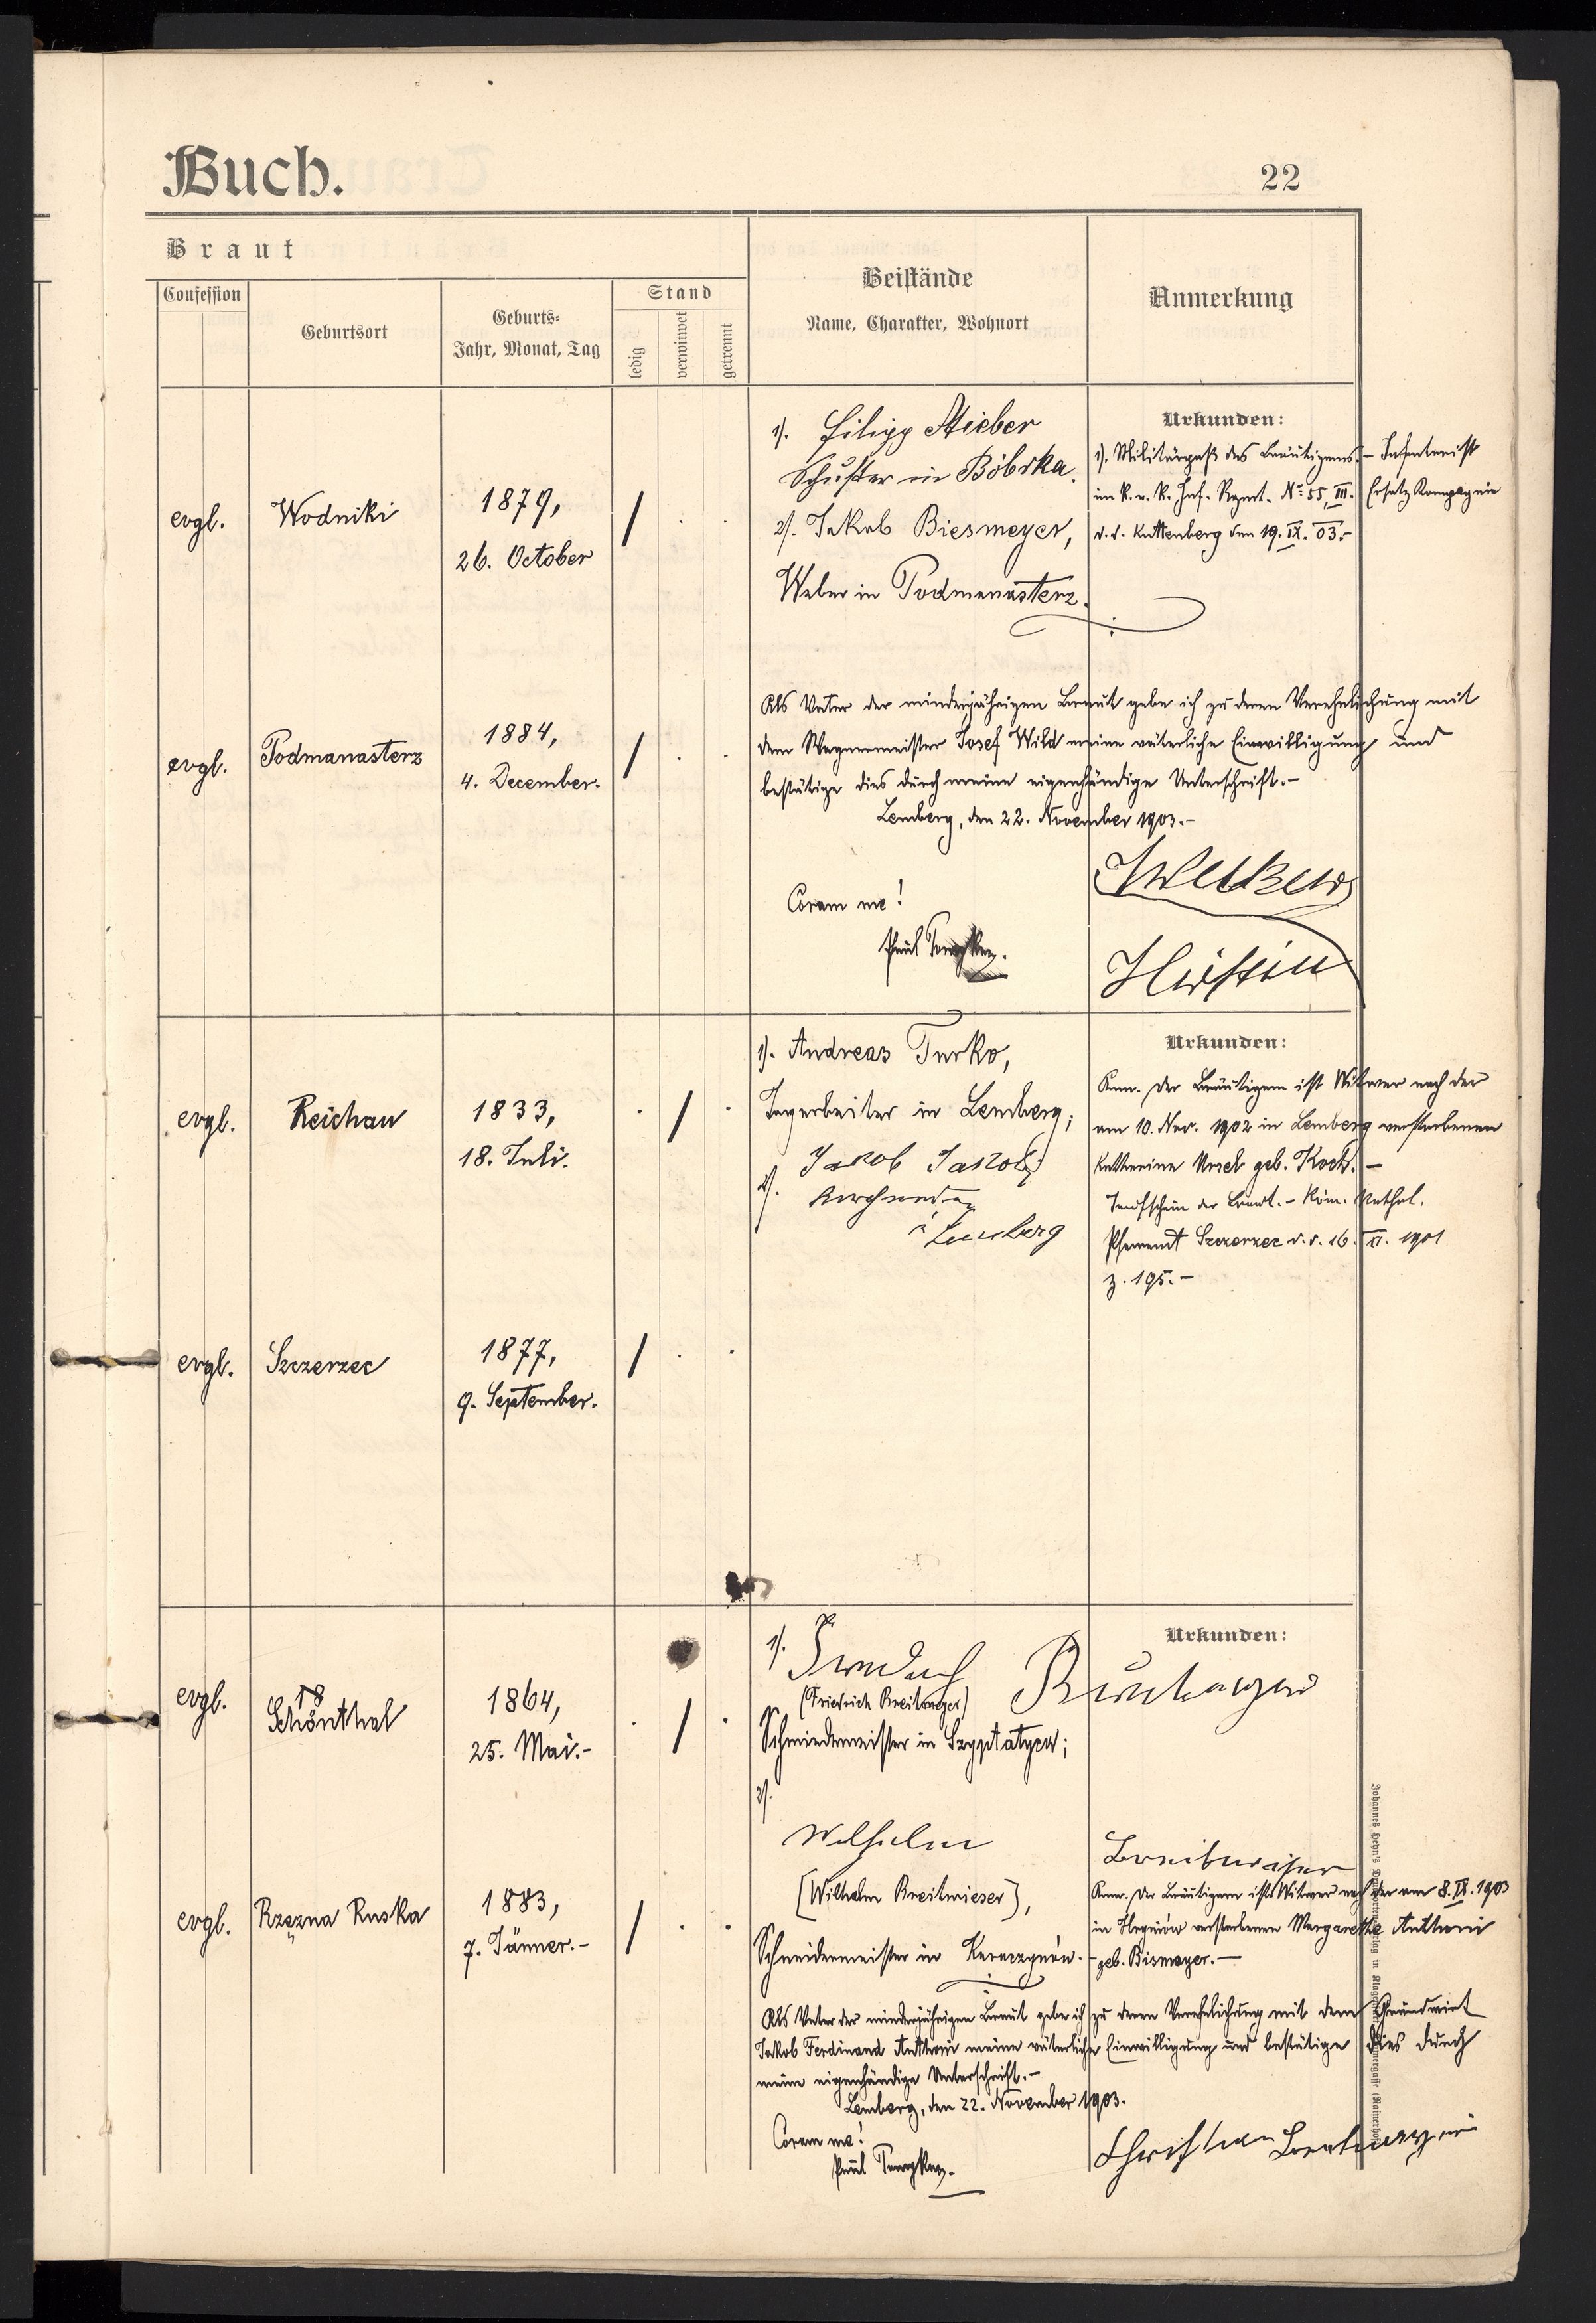 Buch.
22
Braut
Confession
Geburtsort
Geburts-
Jahr, Monat, Tag
Stand
ledig
verwitwet
getrennt
Beistände
Name, Charakter, Wohnort
Anmerkung
evgl.
Wodniki
1879,
26. October
1). Filipp Stieber
Schuster in Bóbrka.
2). Jakob Biesmeyer,
Weber in Podmanasterz.
Urkunden:
1). Militärpaß des Bräutigams. – Infanterist
im k. u. k. Inf. Regmt. No: 55, III. Ersatz Kompagnie
d. d. Kuttenberg den 19. IX. 03.–
evgl.
Podmanasterz
1884,
4. December.
Als Vater der minderjährigen Braut gebe ich zu deren Verehelichung mit
dem Wagnermeister Josef Wild meine väterliche Einwilligung und
bestätige dies durch meine eigenhändige Unterschrift.–
Lemberg, den 22. November 1903.–
Coram me!
Paul
evgl.
Reichau
1833,
18. Juli.
1). Andreas Turko,
Tagarbeiter in Lemberg;
2). Jakob Jakobi
Lemberg
Urkunden:
Anm. Der Bräutigam ist Witwer nach der
am 10. Nov. 1902 in Lemberg verstorbenen
Katharina geb. Koch. –
Taufschein der Braut. – Röm. Kathol.
Pfarramt Szczerzec d. d. 16. XI. 1901
z. 195.–
evgl.
Szczerzec
1877,
9. September.
evgl.
Schönthal
1864,
25. Mai.–
1).
(Friedrich Breitmayer)
Schmiedemeister in
2).
Wilhelm Breitwieser
[Wilhelm Breitwieser],
Schneidermeister in
Urkunden:
Anm. Der Bräutigam ist Witwer nach der am 8. IX. 1903
in verstorbenen Margarethe Anthoni
geb. Bismayer.–
evgl.
Rzęzna Ruska
1883,
7. Jänner.–
Als Vater der minderjährigen Braut gebe ich zu deren Verehelichung mit dem Grundwirt
Jakob Ferdinand Anthoni meine väterliche Einwilligung und bestätige dies durch
meine eigenhändige Unterschrift.–
Lemberg, den 22. November 1903.
Coram me!
Paul
Christian